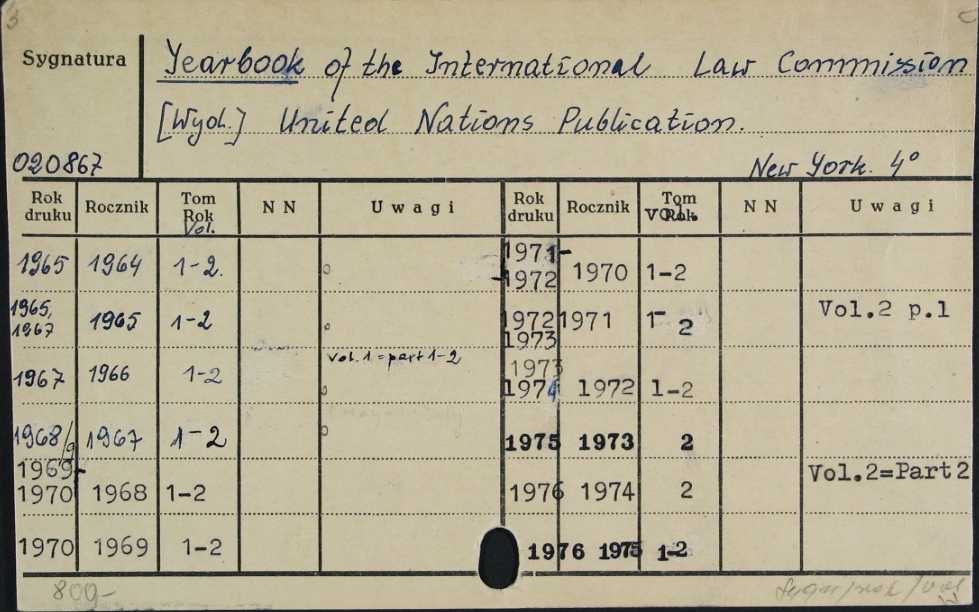 3
Sygnatura
Yearbook of the International Law Commission
[Wyd.] United Nations Publication.
020867
New York. 4°
Rok druku Rocznik Tom Rok Vol. NN Uwagi
1965 1964 1-2.
1965, 1967 1965 1-2
vol. 1 = part 1-2
1967 1966 1-2
1968/9 1967 1-2
1969-1970 1968 1-2
1970 1969 1-2
Rok druku Rocznik Tom Rok vol. NN Uwagi
1971-1972 1970 1-2
1972 1973 1971 1-2 Vol.2 p.1
1973 1974 1972 1-2
1975 1973 2
1976 1974 2 Vol.2=Part 2
1976 1975 1-2
800-